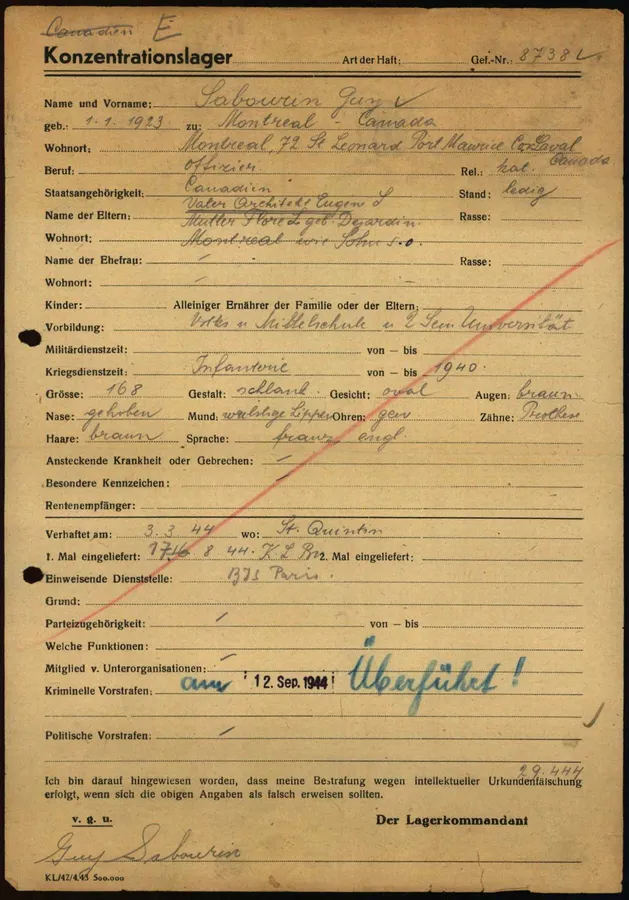 Canadien E
Konzentrationslager Art der Haft: Gef.-Nr.: 8738
Name und Vorname: Sabourin Guy
geb.: 1.1.1923 zu: Montreal - Canada
Wohnort: Montreal, 72 St Leonard Port Maurice Co Laval
Canada
Beruf: Offizier Rel.: kat.
Staatsangehörigkeit: Canadien Stand: ledig
Vater Architekt Eugen S
Name der Eltern: Mutter Flore L geb. Desjardin Rasse:
Wohnort: Montreal wie Sohn s.o.
Name der Ehefrau: / Rasse:
Wohnort: /
Kinder: Alleiniger Ernährer der Familie oder der Eltern:
Vorbildung: Volks u Mittelschule u 2 Sem Universität
Militärdienstzeit: von – bis
Kriegsdienstzeit: Infanterie von – bis 1940.
Grösse: 168 Gestalt: schlank. Gesicht: oval Augen: braun
Nase: gehoben Mund: wulstige Lippen Ohren: gew Zähne: Prothese
Haare: braun Sprache: franz engl.
Ansteckende Krankheit oder Gebrechen: /
Besondere Kennzeichen: /
Rentenempfänger:
Verhaftet am: 3.3.44 wo: St. Quintin
1. Mal eingeliefert: 8 44. K L Bu 2. Mal eingeliefert:
Einweisende Dienststelle: BdS Paris.
Grund:
Parteizugehörigkeit: / von – bis
Welche Funktionen:
Mitglied v. Unterorganisationen: /
Kriminelle Vorstrafen: am 12. Sep. 1944 Überführt!
Politische Vorstrafen: /
29.444
Ich bin darauf hingewiesen worden, dass meine Bestrafung wegen intellektueller Urkundenfälschung
erfolgt, wenn sich die obigen Angaben als falsch erweisen sollten.
v. g. u. Der Lagerkommandant
Guy Sabourin
KL/42/4.43 500.000